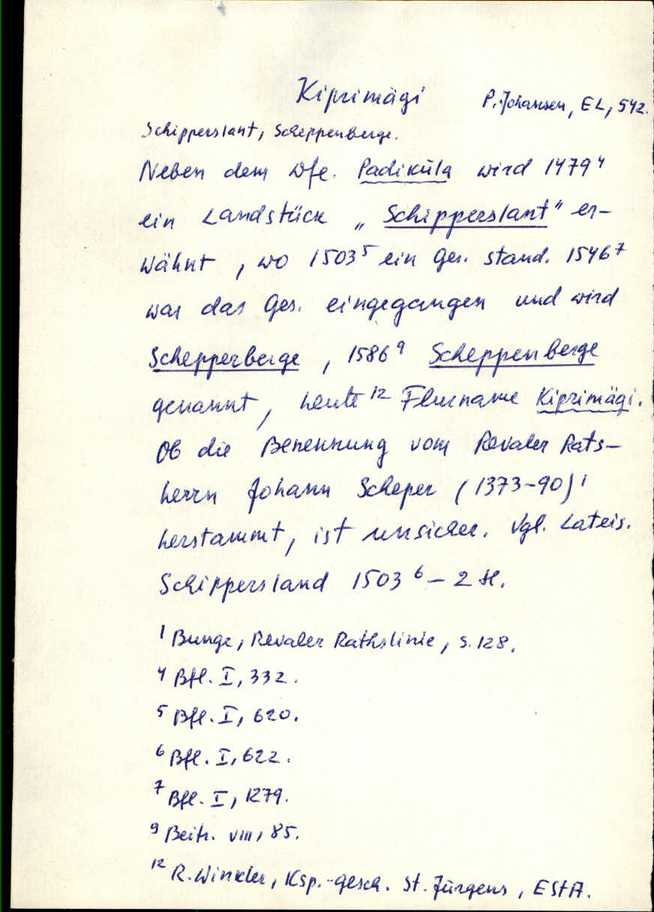 Kiprimägi P. Johansen, EL, 542.
Schipperslant, Scheppenberge.
Neben dem Dfe. Padiküla wird 1479⁴
ein Landstück „Schipperslant" er-
wähnt, wo 1503⁵ ein Ges. stand. 1546⁷
war das Ges. eingegangen und wird
Schepperberge, 1586⁹ Scheppenberge
genannt, heute¹² Flurname Kiprimägi.
Ob die Benennung vom Revaler Rats-
herrn Johann Scheper (1373-90)¹
herstammt, ist unsicher. Vgl. Lateis.
Schippersland 1503⁶ – 2 H.
¹ Bunge, Revaler Rathslinie, S. 128.
⁴ Bfl. I, 332.
⁵ Bfl. I, 620.
⁶ Bfl. I, 622.
⁷ Bfl. I, 1279.
⁹ Beitr. VIII, 85.
¹² R. Winkler, Ksp.-gesch. St. Jürgens, EStA.